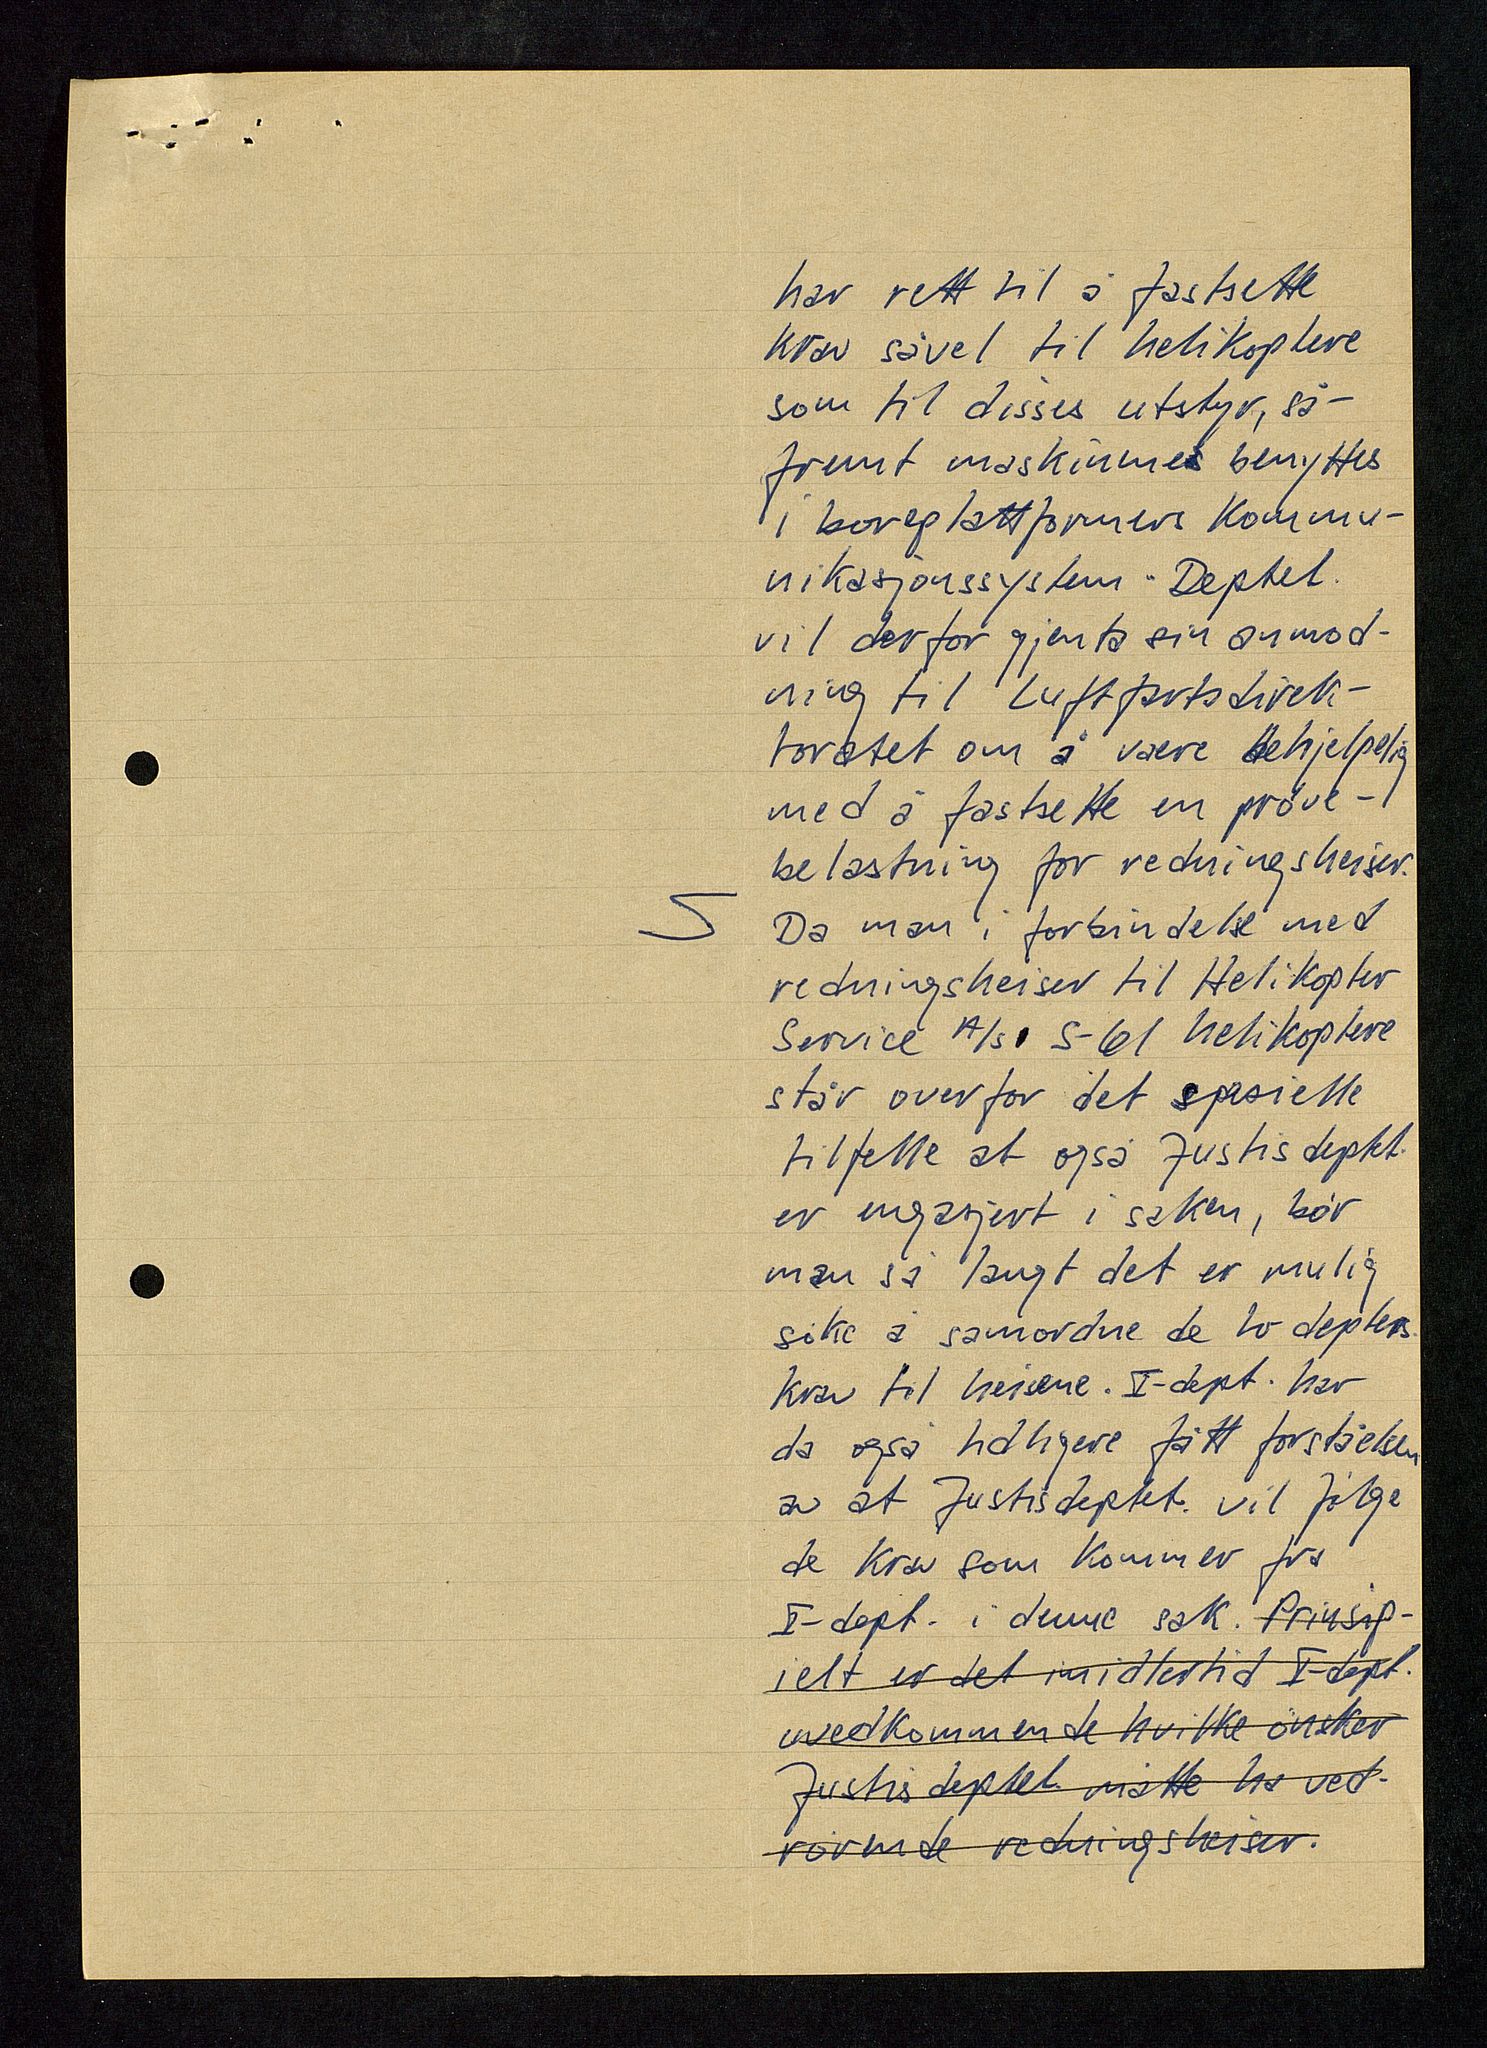 har rett til å fastsette
krav såvel til helikoptere
som til disses utstyr, så-
fremt maskinnes benyttes
i boreplattformers kommu-
nikasjonssystem. Deptet.
vil derfor gjenta sin anmod-
ning til Luftfartsdirek-
toratet om å være behjelpelig
med å fastsette en prøve-
belastning for redningsheiser.
Da man i forbindelse med
redningsheiser til Helikopter
Service A/S' S-61 helikoptere
står overfor det spesielle
tilfelle at også Justisdeptet.
er engasjert i saken, bör
man så langt det er mulig
söke å samordne de to depters.
krav til heisene. I-dept. har
da også tidligere fått forståelsen
av at Justisdeptet. vil fölge
de krav som kommer fra
I-dept. i denne sak. Prinsip-
ielt er det imidlertid I-dept.
uvedkommende hvilke önsker
Justisdeptet. måtte ha ved-
rörende redningsheiser.